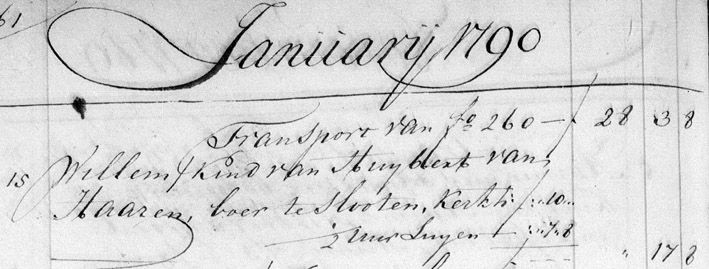 61
Januarij 1790
Transport van fo 260 — f 28 3 8
15 Willem / Kind van Huybert van
Haaren, boer te Slooten, Kerkh: f „ 10 „
½ Uur Luyen — „ 7 „ 8
„ 17 8